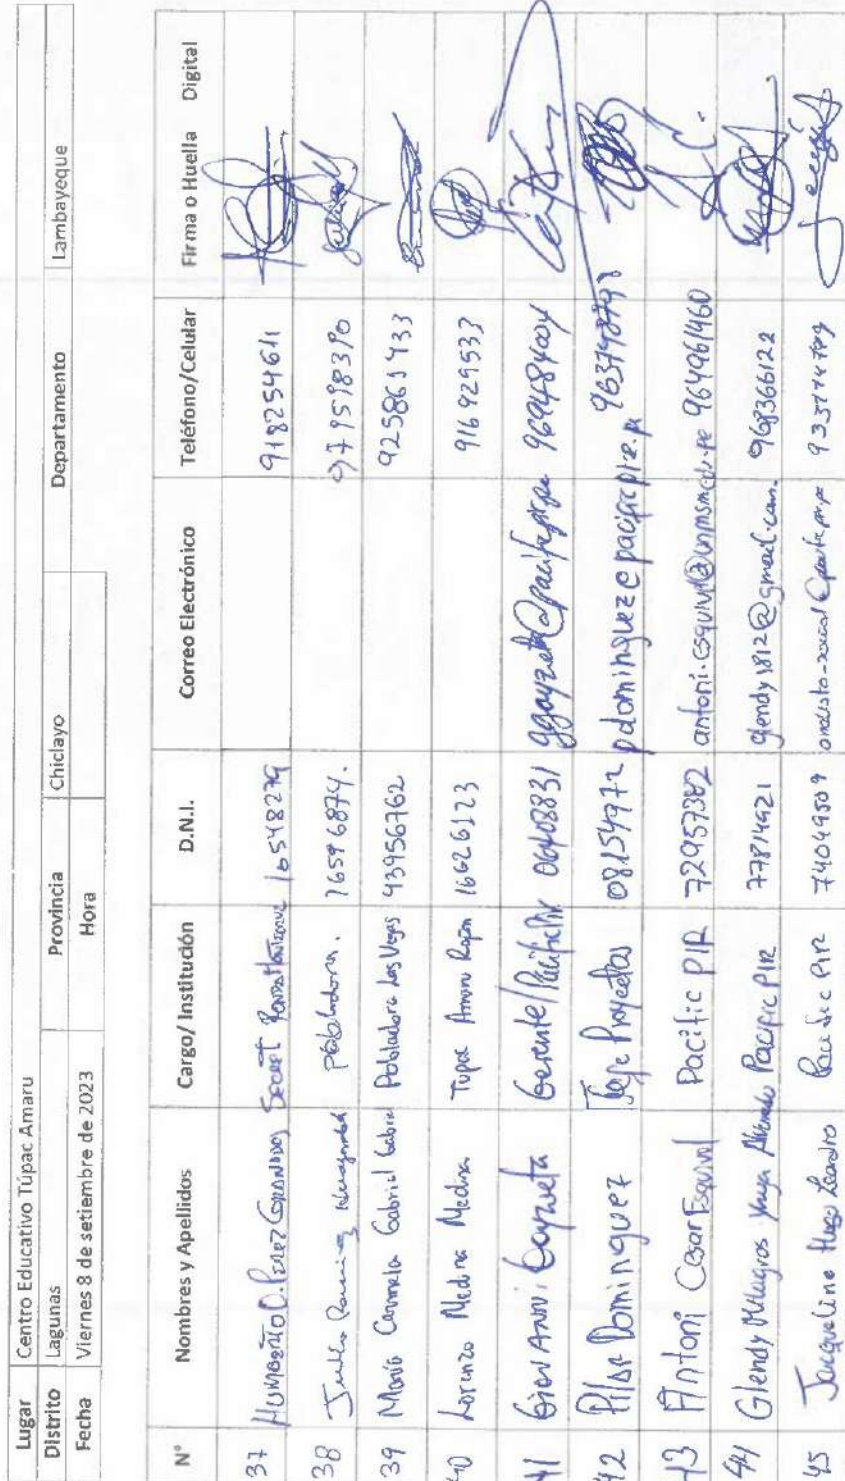 Lugar Centro Educativo Túpac Amaru
Distrito Lagunas Provincia Chiclayo Departamento Lambayeque
Fecha Viernes 8 de setiembre de 2023 Hora
N° Nombres y Apellidos Cargo/ Institución D.N.I. Correo Electrónico Teléfono/Celular Firma o Huella Digital
37 HUMBERTO D. PEREZ GRANADOS 16548279 918254611
38 Pobladora. 16596874. 979598390
39 María Carmela Gabriel Gabriel Pobladora Las Vegas 43956762 925861433
40 Lorenzo Medina Medina Tupac Amaru 16626123 916929533
41 GIOVANNI Gayzueta Gerente/PacificPIR 06408831 969484004
42 Pilar Dominguez Jefe Proyectos 08154972 pdominguez@pacificpir.pe 963748798
43 Antoni Cesar Esquivel Pacific PIR 72957382 antoni.esquivel@unmsm.edu.pe 964961460
44 Glendy Milagros Pacific PIR 77814921 glendy1812@gmail.com. 968366122
45 Jacqueline Hugo Leandro Pacific PIR 74049509